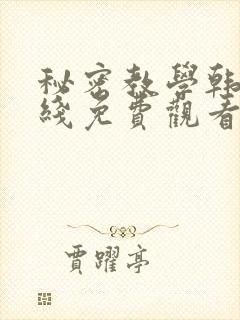 秘密教學韓
綫免費觀看
賈躍亭